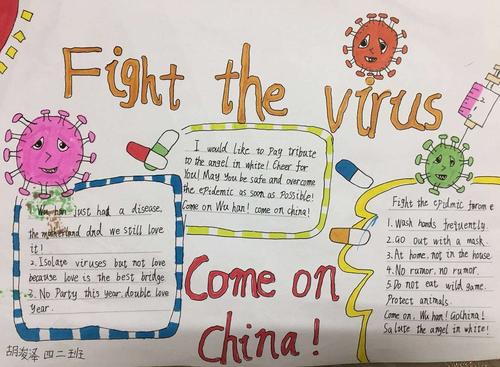 Fight the virus
I would like to pay tribute
to the angel in white! Cheer for
You! May You be safe and overcome
the epidemic as soon as Possible!
Come on Wu han! come on china!
Wu han just had a disease,
the motherland and we still love
it!
2. Isolate viruses but not love
because love is the best bridge.
3. No Party this year, double love
year.
Fight the epidmic forom e
1. Wash hands frequently.
2. Go out with a mask.
3. At home, not in the house.
4. No rumor, no rumor.
5. Do not eat wild game.
Protect animals.
Come on, Wu han! GoChina!
Salute the angel in white!
Come on
China!
胡浚泽 四二班